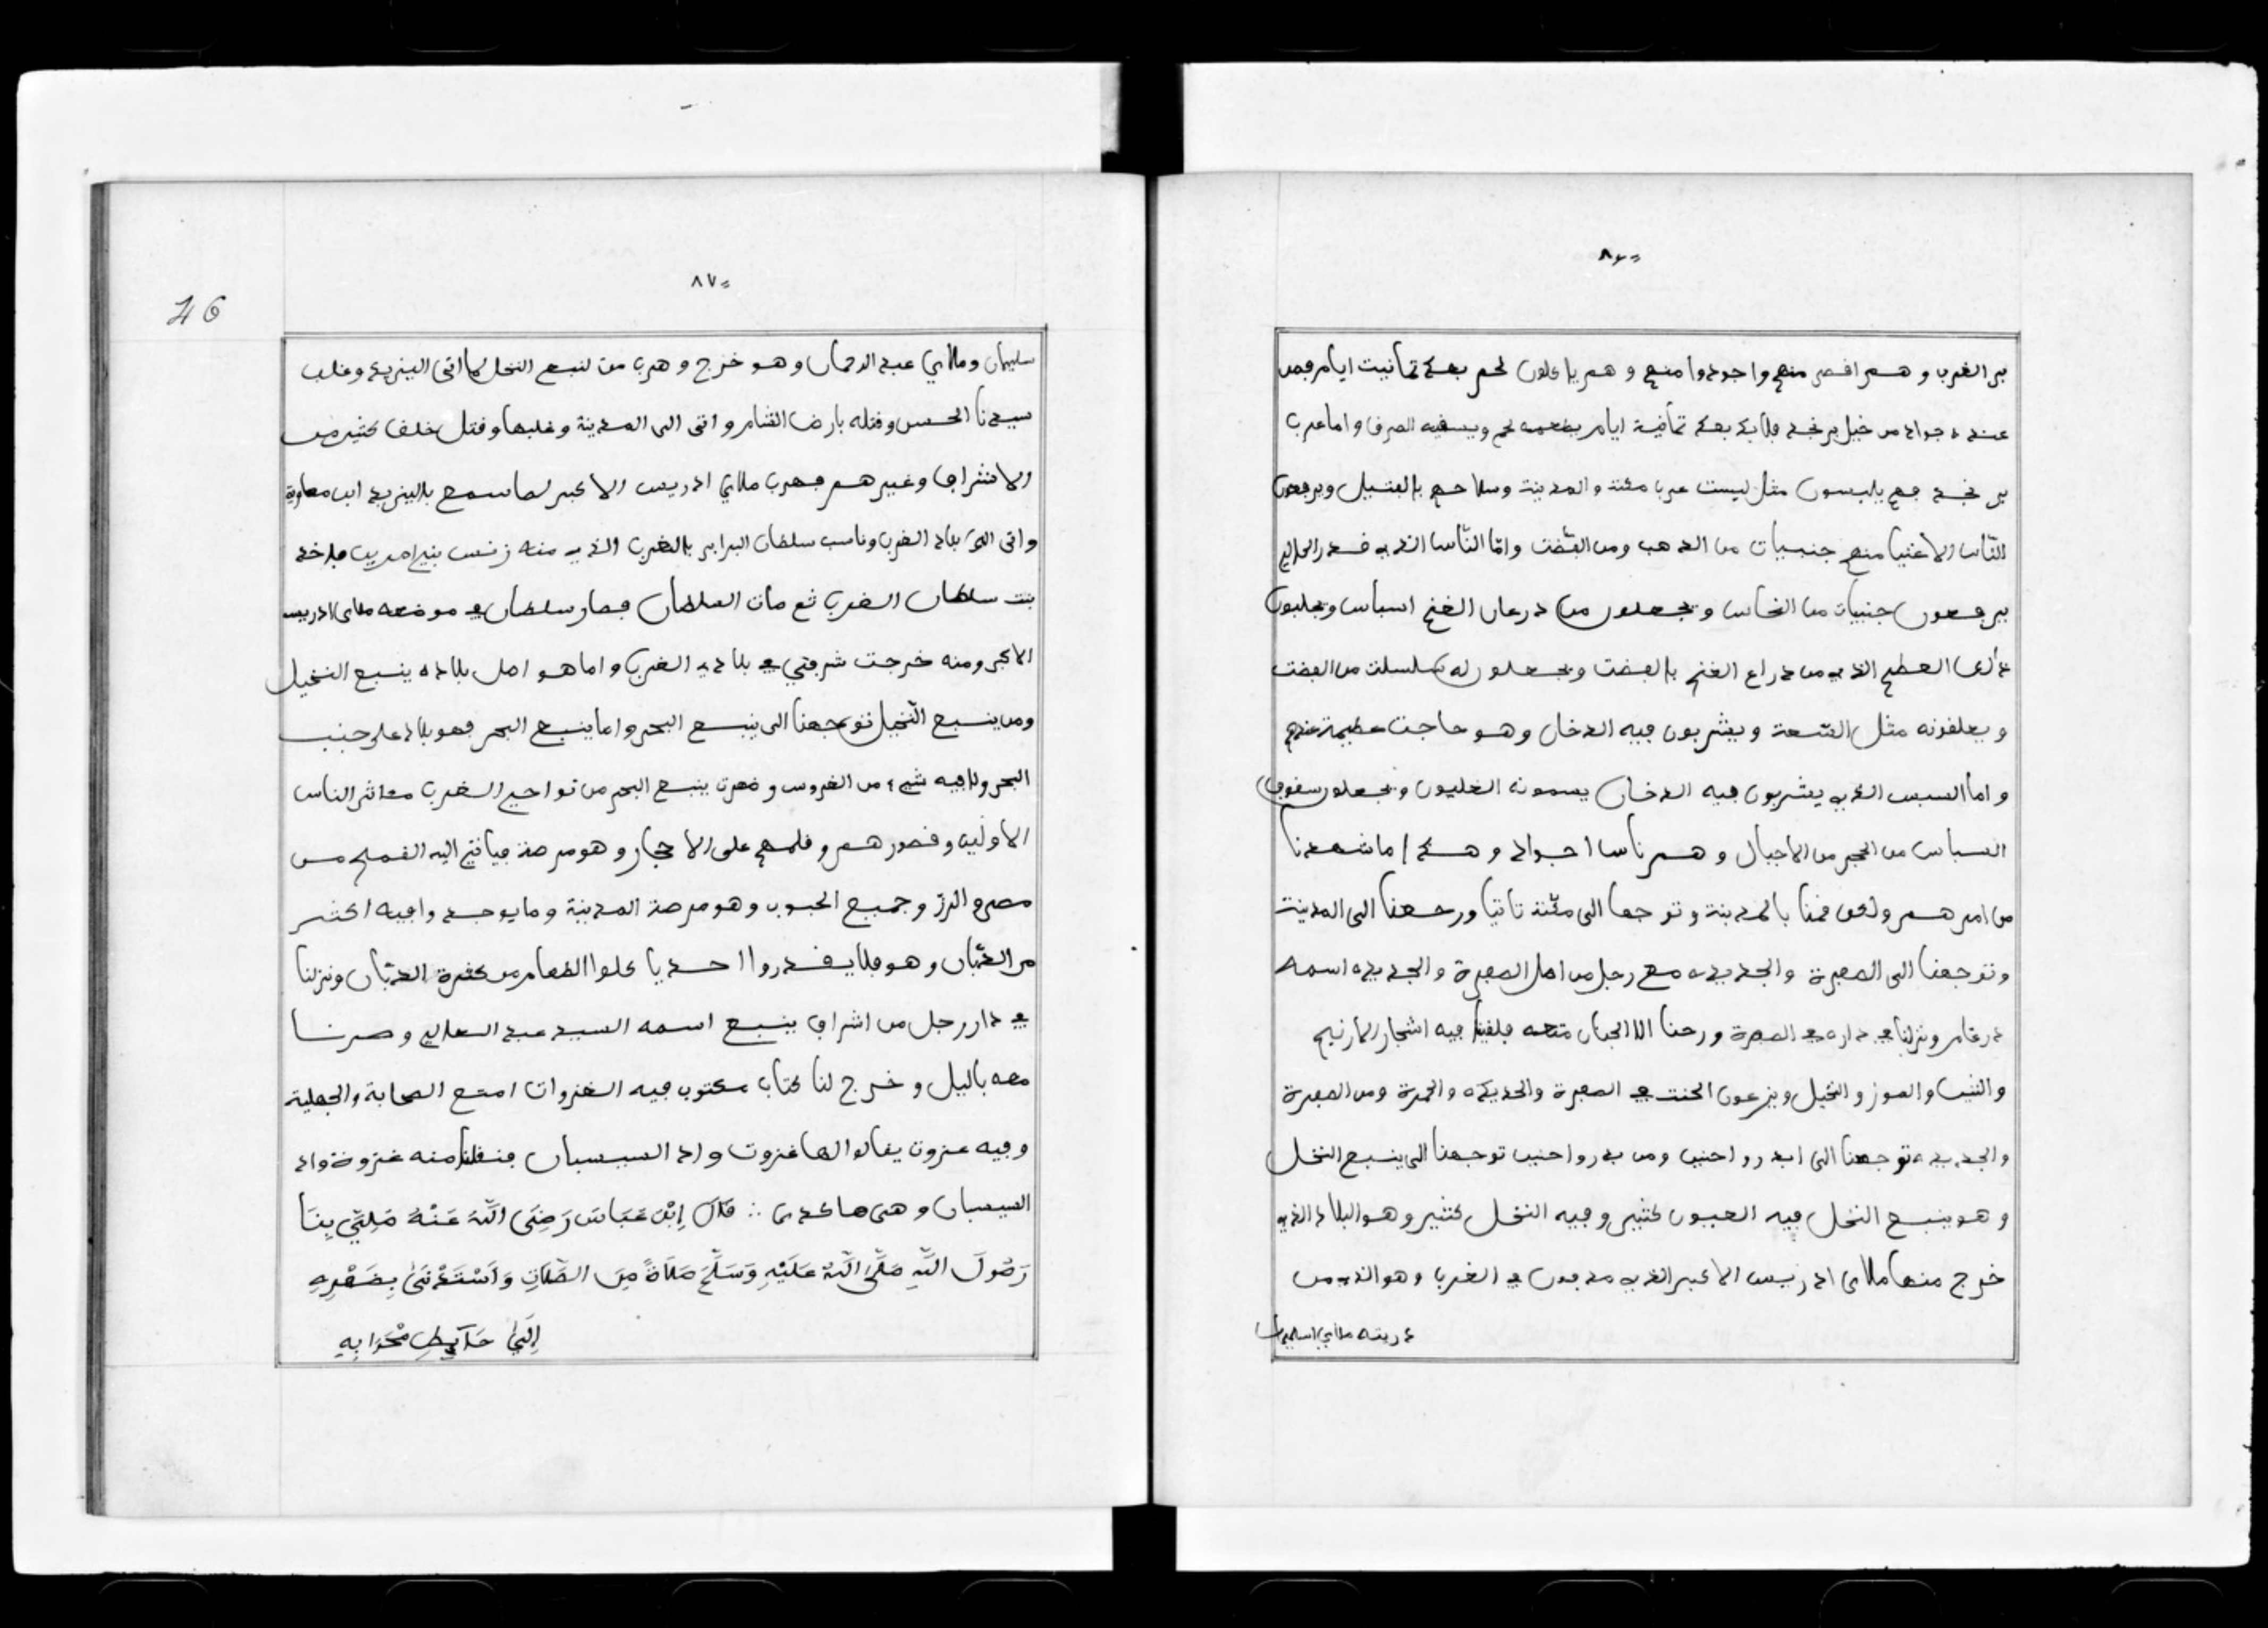 ٨٦
بر الغرب و هم اقصر منهم واجودوا منهم و هم ياكلون لحم بعد ثمانيت ايام فمن
عنده جواد من خيل بر نجد فلابد بعد ثمانية ايام يطعمه لحم ويسقيه الصرف واما عرب
بر نجد فهم يلبسون مثل لبست عرب مكة والمدينة وسلاحهم بالفتيل ويرفعون
النّاس الاغنيا منهم جنبيات من الذهب ومن الفضّت وامّا النّاس الذي قدر الحال
يرفعون جنبيات من النحاس ويجعلون من درعان الغنم اسباس ويجلبون
ذلك العظم الذي من دراع الغنم بالفضت ويجعلون له سلسلت من الفضت
ويعلقونه مثل السّعة ويشربون فيه الدخان وهو حاجت عظيمة عندهم
واما السبس الذي يشربون فيه الدخان يسمونه الغليون ويجعلون
السباس من الحجر من الاجبال و هم ناس اجواد و هكدا ما شهدنا
من امرهم ونحن قمنا بالمدينة وتوجهنا الى مكّة تانيا ورجعنا الى المدينة
وتوجهنا الى الصفرة والجديده مع رجل من اهل الصفرة والجديده اسمه
درغام ونزلنا في داره في الصفرة ورحنا الا الجنان متعه فلقينا فيه اشجار النارنج
والتين والموز والنخيل ويزرعون الحنت في الصفرة والجديده والحمرة ومن الصفرة
والجديده توجهنا الى ابدر واحنين ومن بدر واحنين توجهنا الى ينبع النخل
و هو ينبع النخل فيه العيون كثير وفيه النخل كثير وهو البلاد الذي
خرج منها ملاي ادريس الاكبر الذي مدفون في الغرب وهو الذي من
ذريته ملاي اسليمان
٨٧
46
سليمان وملاي عبد الرحمان وهو خرج و هرب من ينبع النخل لما اتى اليزيد وغلب
سيدنا الحسن وقتله بارض الشام واتى الى المدينة وغلبها وقتل خلق كثير من
الاشراف وغيرهم فهرب ملاي ادريس الاكبر لما سمع باليزيد ابن معاوية
واتى الى بلاد الغرب وناسب سلطان البرابر بالغرب الذي منه زنس بني امرين فاخد
بنت سلطان الغرب ثم مات السلطان فصار سلطان في موضعه ملاي ادريس
الاكبر ومنه خرجت شرفتي في بلاد الغرب واما هو اصل بلاده ينبع النخيل
ومن ينبع النّخيل توجهنا الى ينبع البحر واما ينبع البحر فهو بلاد على جنب
البحر ولا فيه شيء من الغروس وظهرت ينبع البحر من نواحي الغرب معاثر الناس
الاولين وقصورهم وقلمهم على الاحجار وهو مرصة فياتي اليه القمح من
مصر والرز وجميع الحبوب وهو مرصة المدينة وما يوجد وافيه اكثر
من الذّبان وهو فلا يقدروا احد ياكلوا الطعام من كثرة الذبّان ونزلنا
في دار رجل من اشراف ينبع اسمه السيد عبد العالي وصرنا
معه باليل وخرج لنا كتاب مكتوب فيه الغزوات امتع الصحابة والجهلية
وفيه غزوت يقالوا لها غزوت واد السيسبان فنقلنا منه غزوة واد
السيسبان وهي هاكدى ∴ قَالَ إِبْن عَبَاسَ رَضِىَ اللَّهُ عَنْهُ صَلِّي بِنَا
رَسُولَ اللَّهِ صَلَّى اللَّهُ عَلَيْهِ وَسَلَّمَ صَلَاةً مِنَ الصَّلَاتِ وَاسْتَدْنَى بِضَهْرِهِ
إِلَىٰ حَآيِطِ مْحْرَابِهِ